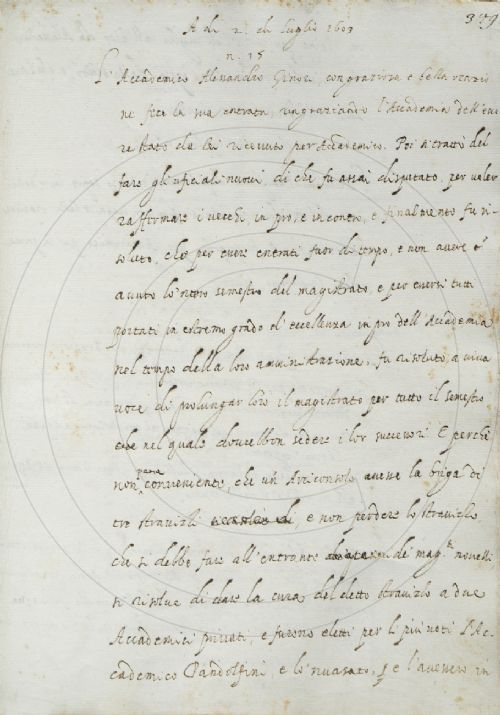 379
A di 2. di luglio 1609
n. 15
L'Accademico Alessandro Ginori, con graziosa e bella orazio
ne fece la sua entrata, ringraziando l'Accademia dell'esse
re stato da lei ricevuto per Accademico. Poi si trattò del
fare gli uficiali nuovi, di che fu assai disputato, per voler
raffermare i vecchi, in pro, e in contro, e finalmente fu ri
soluto, che per essere entrati fuor di tempo, e non avere
avuto lo 'ntero semestro del magistrato, e per essersi tutti
portati in estremo grado d'eccellenza in pro dell'Accademia
nel tempo della loro amministrazione, fu risoluto, a viva
voce di prolungar loro il magistrato per tutto il semestro
nel quale dovrebbon sedere i lor successori. E perchè
non parea conveniente, che un Arciconsolo avesse la briga di
tre stravizzi, e non perdere lo stravizzo
che si debbe fare all'entrante de' mag.ti novelli
si risolve di dare la cura del detto stravizzo a due
Accademici privati, e furono eletti per li più noti l'Ac
cademico Pandolfini, e lo 'nvasato, e l'avessero in